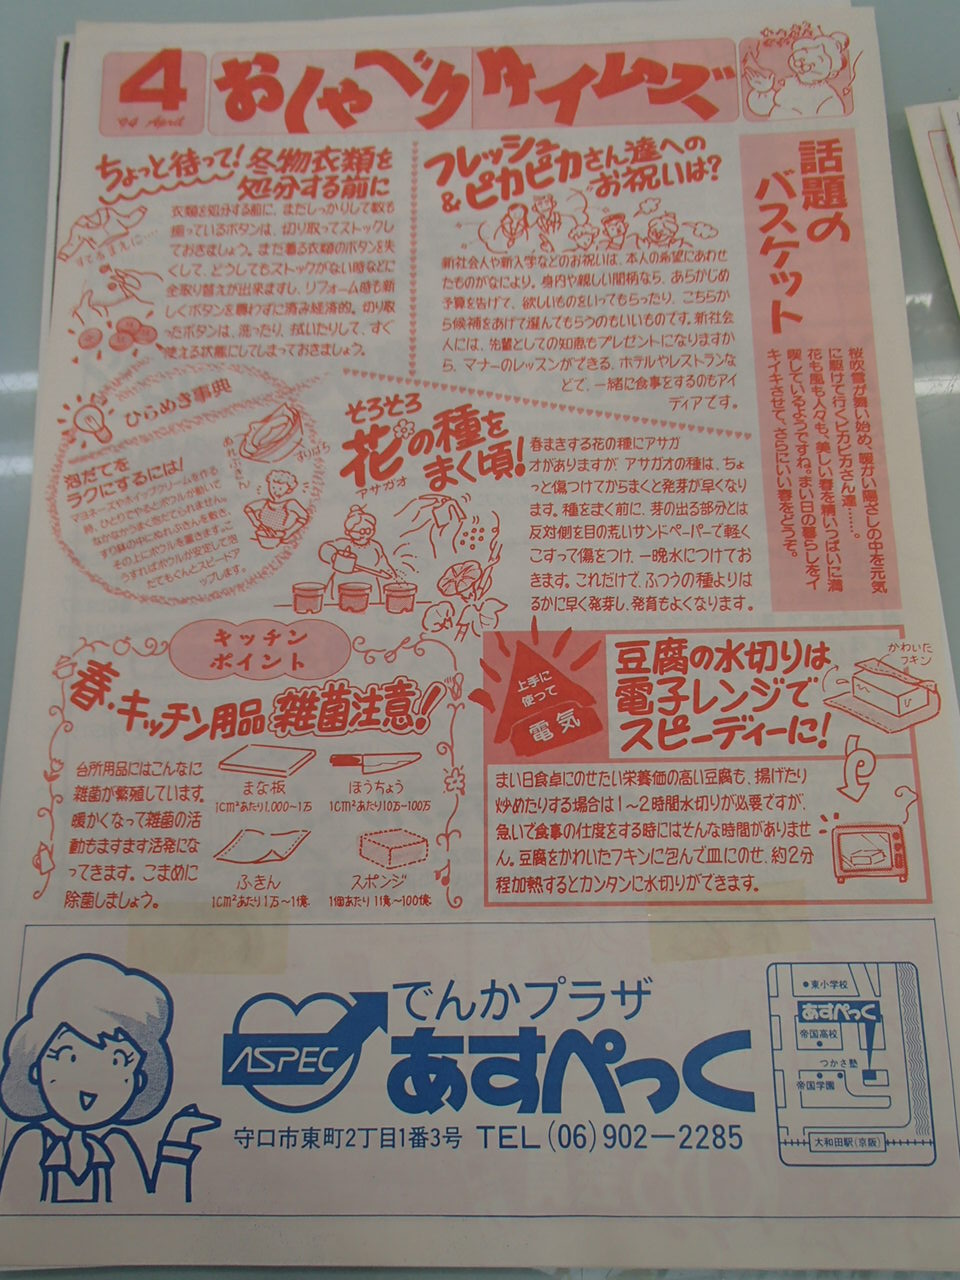 4
'94 April
おしゃべりタイムズ
話題の
バスケット
桜吹雪が舞い始め、暖かい陽ざしの中を元気
に駆けて行くピカピカさん達……。
花も風も人々も、美しい春を精いっぱいに満
喫しているようですね。まい日の暮らしをイ
キイキさせて、さらにいい春をどうぞ。
フレッシュ
&ピカピカさん達への
お祝いは?
新社会人や新入学などのお祝いは、本人の希望にあわせ
たものがなにより。身内や親しい間柄なら、あらかじめ
予算を告げて、欲しいものをいってもらったり、こちらか
ら候補をあげて選んでもらうのもいいものです。新社会
人には、先輩としての知恵もプレゼントになりますか
ら、マナーのレッスンができる、ホテルやレストランな
どで、一緒に食事をするのもアイ
ディアです。
ちょっと待って!冬物衣類を
処分する前に
すてるまえに…
衣類を処分する前に、まだしっかりして数も
揃っているボタンは、切り取ってストックし
ておきましょう。また着る衣類のボタンを失
くして、どうしてもストックがない時などに
全取り替えが出来ますし、リフォーム時も新
しくボタンを買わずに済み経済的。切り取
ったボタンは、洗ったり、拭いたりして、すぐ
使える状態にしてしまっておきましょう。
ひらめき事典
泡だてを
ラクにするには!
マヨネーズやホイップクリームを作る
時、ひとりでやるとボウルが動いて
なかなかうまく泡だてられません。
すり鉢の中にぬれぶきんを敷き、
その上にボウルを置きます。こ
うすればボウルが安定して泡
だてもぐんとスピードア
ップします。
ぬれぶきん
すりばち
そろそろ
花の種を
まく頃!
アサガオ
春まきする花の種にアサガ
オがありますが、アサガオの種は、ちょ
っと傷つけてからまくと発芽が早くなり
ます。種をまく前に、芽の出る部分とは
反対側を目の荒いサンドペーパーで軽く
こすって傷をつけ、一晩水につけてお
きます。これだけで、ふつうの種よりは
るかに早く発芽し、発育もよくなります。
キッチン
ポイント
春・キッチン用品雑菌注意!
台所用品にはこんなに
雑菌が繁殖しています。
暖かくなって雑菌の活
動もますます活発にな
ってきます。こまめに
除菌しましょう。
まな板
1cm²あたり1,000~1万
ほうちょう
1cm²あたり10万~100万
ふきん
1cm²あたり1万~1億
スポンジ
1個あたり1億~100億
上手に
使って
電気
豆腐の水切りは
電子レンジで
スピーディーに!
かわいた
フキン
まい日食卓にのせたい栄養価の高い豆腐も、揚げたり
炒めたりする場合は1~2時間水切りが必要ですが、
急いで食事の仕度をする時にはそんな時間がありませ
ん。豆腐をかわいたフキンに包んで皿にのせ、約2分
程加熱するとカンタンに水切りができます。
ASPEC
でんかプラザ
あすぺっく
守口市東町2丁目1番3号 TEL(06)902-2285
東小学校
あすぺっく
帝国高校
つかさ塾
帝国学園
大和田駅(京阪)